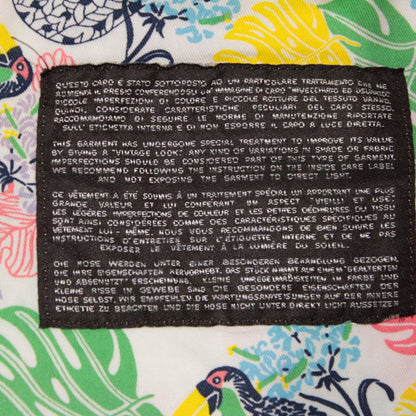 QUESTO CAPO È STATO SOTTOPOSTO AD UN PARTICOLARE TRATTAMENTO CHE NE
AUMENTA IL PREGIO CONFERENDOGLI UN'IMMAGINE DI CAPO "INVECCHIATO ED USURATO".
PICCOLE IMPERFEZIONI DI COLORE E PICCOLE ROTTURE DEL TESSUTO VANNO,
QUINDI, CONSIDERATE CARATTERISTICHE PECULIARI DEL CAPO STESSO.
RACCOMANDIAMO DI SEGUIRE LE NORME DI MANUTENZIONE RIPORTATE
SULL'ETICHETTA INTERNA E DI NON ESPORRE IL CAPO A LUCE DIRETTA.
THIS GARMENT HAS UNDERGONE SPECIAL TREATMENT TO IMPROVE ITS VALUE
BY GIVING A "VINTAGE LOOK". ANY KIND OF VARIATIONS IN SHADE OR FABRIC
IMPERFECTIONS SHOULD BE CONSIDERED PART OF THIS TYPE OF GARMENT.
WE RECOMMEND FOLLOWING THE INSTRUCTION ON THE INSIDE CARE LABEL
AND NOT EXPOSING THE GARMENT TO DIRECT LIGHT.
CE VÊTEMENT A ÉTÉ SOUMIS À UN TRAITEMENT SPÉCIAL LUI APPORTANT UNE PLUS
GRANDE VALEUR ET LUI CONFÉRANT UN ASPECT "VIEILLI ET USÉ".
LES LÉGÈRES IMPERFECTIONS DE COULEUR ET LES PETITES DÉCHIRURES DU TISSU
SONT AINSI CONSIDÉRÉES COMME DES CARACTÉRISTIQUES SPÉCIFIQUES AU
VÊTEMENT LUI - MÊME. NOUS VOUS RECOMMANDONS DE BIEN SUIVRE LES
INSTRUCTIONS D'ENTRETIEN SUR L'ÉTIQUETTE INTERNE ET DE NE PAS
EXPOSER LE VÊTEMENT À LA LUMIÈRE DU SOLEIL.
DIE HOSE WERDEN UNTER EINER BESONDEREN BEHANDLUNG GEZOGEN,
DIE IHRE EIGENSCHAFTEN HERVORHEBT. DAS STÜCK NIMMT AUF EINEM GEALTERTEN
UND ABGENÜTZT ERSCHEINUNG. KLEINE UNREGELMÄßIGKEITEN IN FARBE UND
KLEINE RISSE IN GEWEBE SIND DIE BESONDERE EIGENSCHAFTEN DER
HOSE SELBST. WIR EMPFEHLEN DIE WARTUNGSANWEISUNGEN AUF DER INNERE
ETIKETTE ZU BEACHTEN UND DIE HOSE NICHT UNTER DIREKT LICHT AUSSETZEN